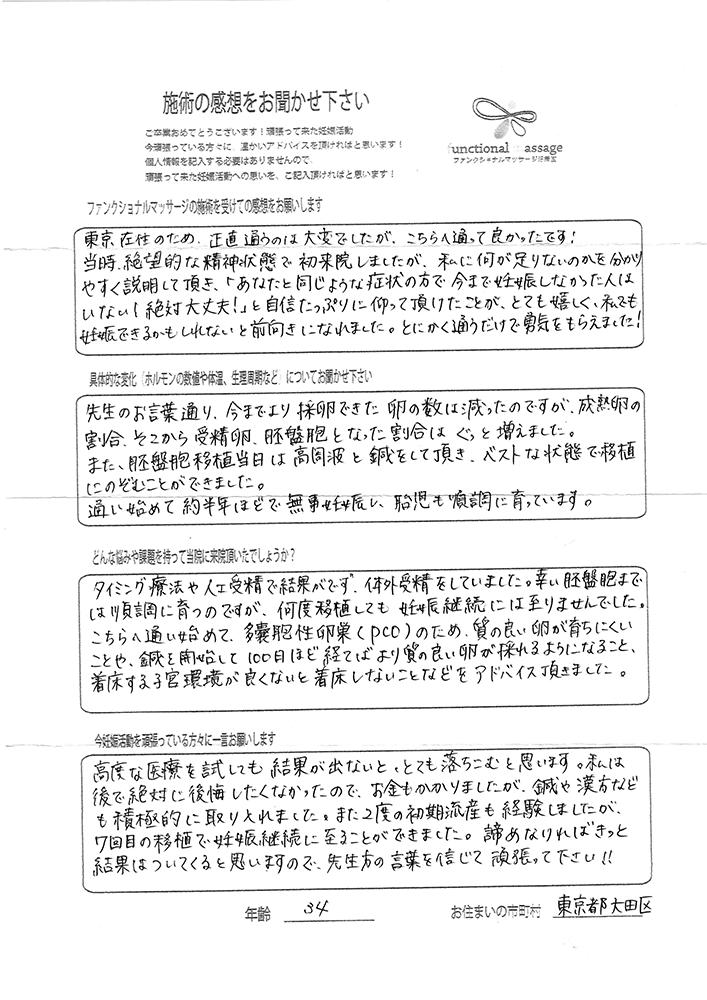 施術の感想をお聞かせ下さい
ご卒業おめでとうございます！頑張って来た妊娠活動
今頑張っている方々に、温かいアドバイスを頂ければと思います！
個人情報を記入する必要はありませんので、
頑張って来た妊娠活動への思いを、ご記入頂ければと思います！
functional massage
ファンクショナルマッサージ
ファンクショナルマッサージの施術を受けての感想をお願いします
東京在住のため、正直通うのは大変でしたが、こちらへ通って良かったです！
当時、絶望的な精神状態で初来院しましたが、私に何が足りないのかを分かり
やすく説明して頂き、「あなたと同じような症状の方で今まで妊娠しなかった人は
いない！絶対大丈夫！」と自信たっぷりに仰って頂けたことが、とても嬉しく、私でも
妊娠できるかもしれないと前向きになれました。とにかく通うだけで勇気をもらえました！
具体的な変化（ホルモンの数値や体温、生理周期など）についてお聞かせ下さい
先生のお言葉通り、今までより採卵できた卵の数は減ったのですが、成熟卵の
割合、そこから受精卵、胚盤胞となった割合はぐっと増えました。
また、胚盤胞移植当日は高周波と鍼をして頂き、ベストな状態で移植
にのぞむことができました。
通い始めて約半年ほどで無事妊娠し、胎児も順調に育っています。
どんな悩みや課題を持って当院に来院頂いたでしょうか？
タイミング療法や人工受精で結果がでず、体外受精をしていました。幸い胚盤胞まで
は順調に育つのですが、何度移植しても妊娠継続には至りませんでした。
こちらへ通い始めて、多嚢胞性卵巣（PCO）のため、質の良い卵が育ちにくい
ことや、鍼を開始して100日ほど経てばより質の良い卵が採れるようになること、
着床する子宮環境が良くないと着床しないことなどをアドバイス頂きました。
今妊娠活動を頑張っている方々に一言お願いします
高度な医療を試しても結果が出ないと、とても落ちこむと思います。私は
後で絶対に後悔したくなかったので、お金もかかりましたが、鍼や漢方など
も積極的に取り入れました。また2度の初期流産も経験しましたが、
7回目の移植で妊娠継続に至ることができました。諦めなければきっと
結果はついてくると思いますので、先生方の言葉を信じて頑張って下さい！！
年齢 34
お住まいの市町村 東京都大田区